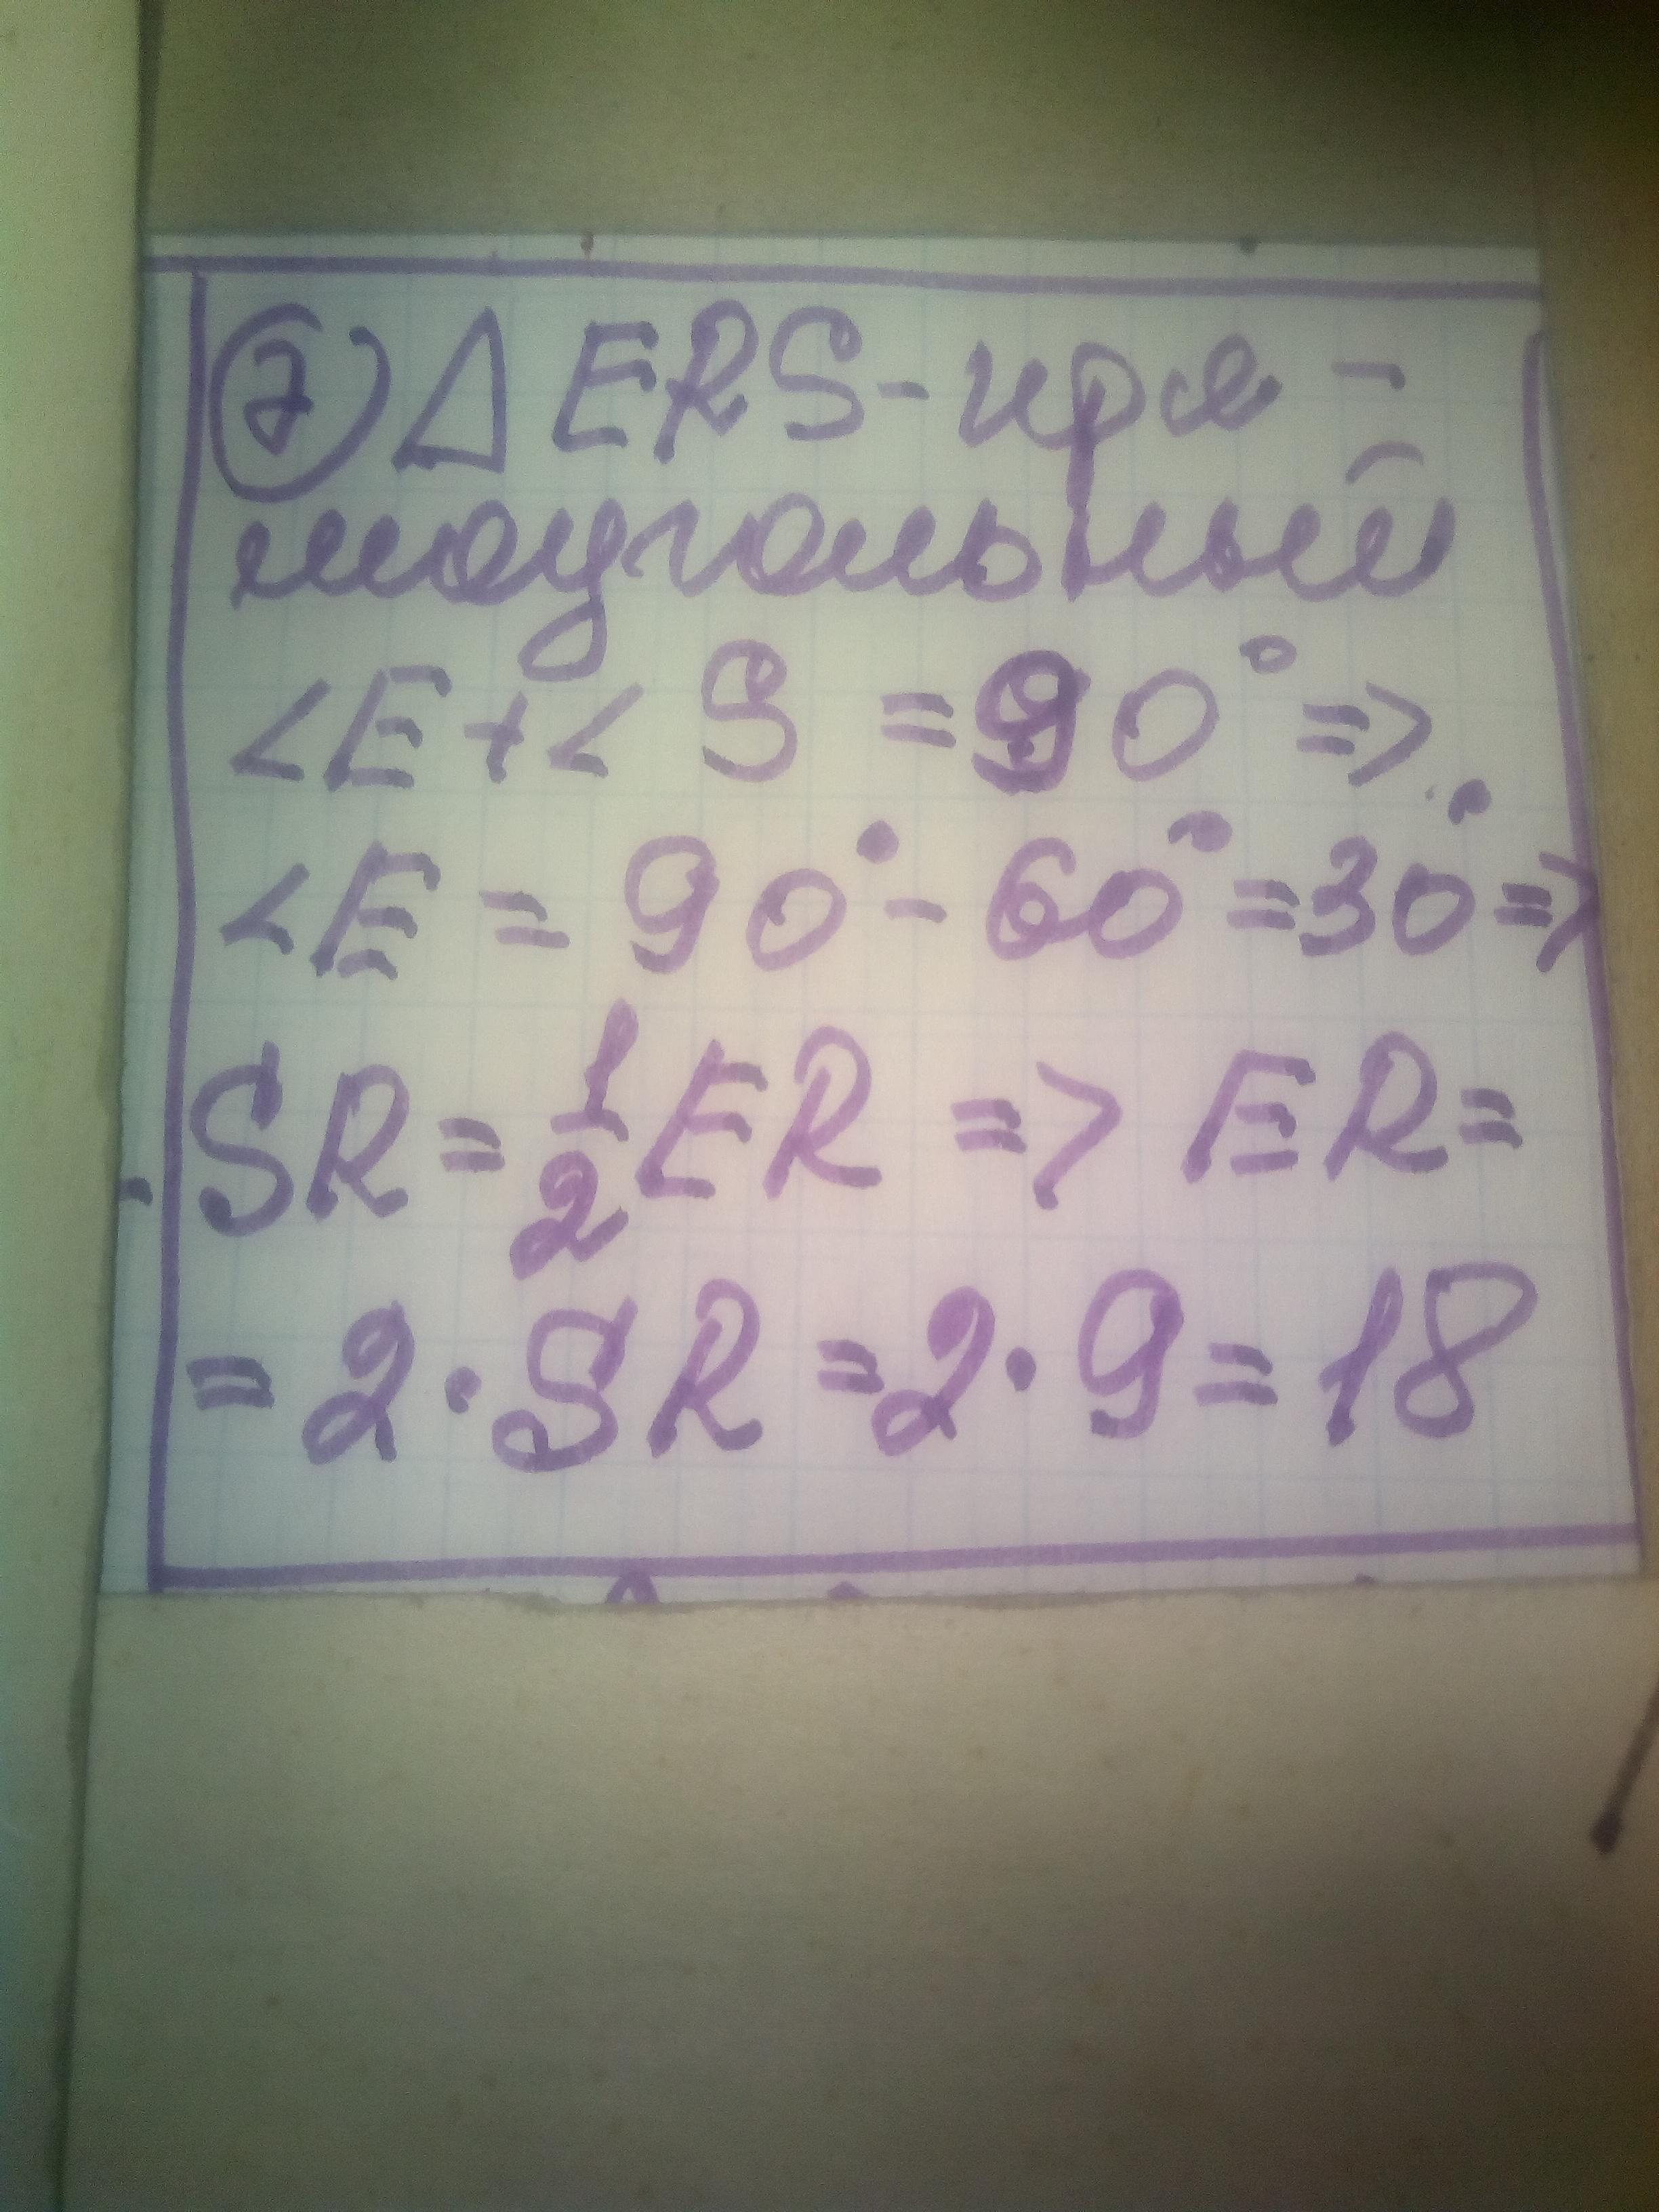 7) Δ ERS - пря-
моугольный
<E + < S = 90° =>
<E = 90° - 60° = 30° =>
SR = 1/2 ER => ER =
= 2 · SR = 2 · 9 = 18